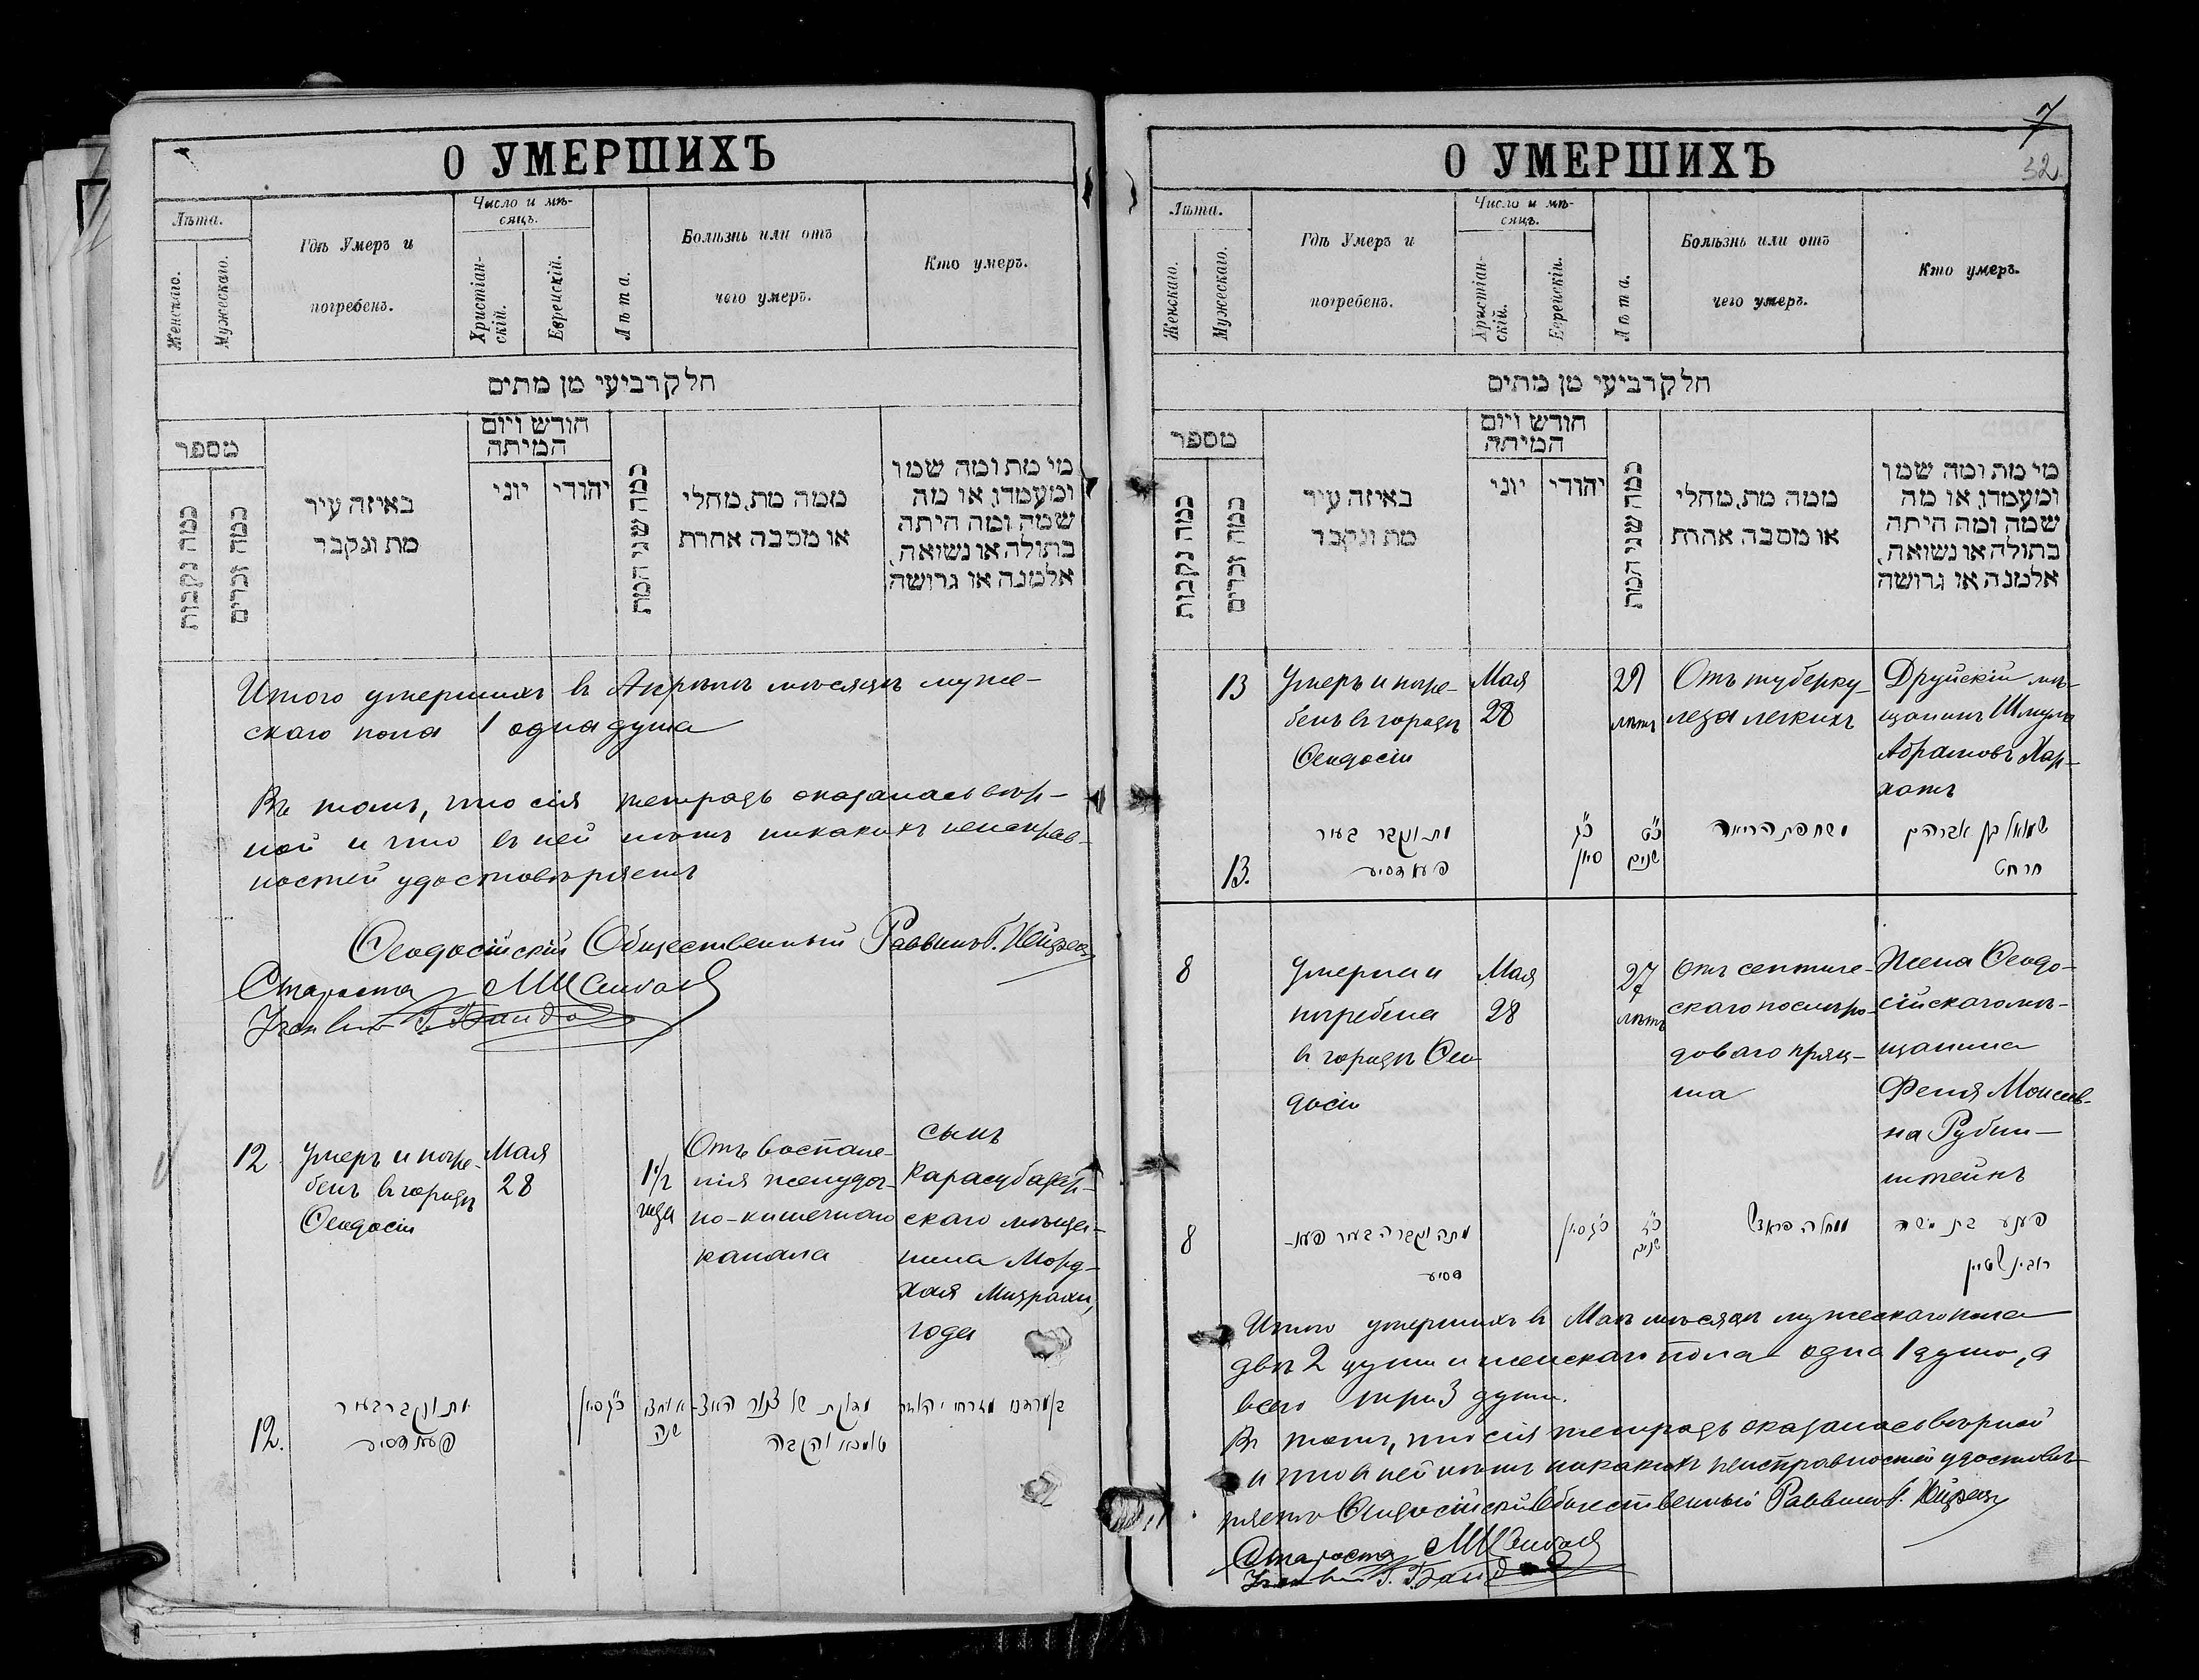 О УМЕРШИХЪ
Лѣта.
Женскаго.
Мужескаго.
Гдѣ Умеръ и
погребенъ.
Число и мѣ-
сяцъ.
Христіан-
скій.
Еврейскій.
Лѣта.
Болѣзнь или отъ
чего умеръ.
Кто умеръ.
חלק רביעי מן מתים
מספר
כמה נקבות
כמה זכרים
באיזה עיר
מת ונקבר
חודש ויום
המיתה
יוני
יהודי
כמה שני המת
ממה מת, מחלי
או מסבה אחרת
מי מת ומה שמו
ומעמדו, או מה
שמה ומה היתה
בתולה או נשואה,
אלמנה או גרושה
Итого умершихъ въ Апрѣлѣ мѣсяцѣ муже-
скаго пола 1 одна душа
Въ томъ, что сія тетрадь оказалась вѣр-
ной и что въ ней нѣтъ никакихъ неисправ-
ностей удостовѣряетъ
Ѳеодосійскій Общественный Раввинъ Г.
Староста
12
Умеръ и погре-
бенъ въ городѣ
Ѳеодосіи
Мая
28
1 1/2
года
Отъ воспале-
нія желудоч-
но-кишечнаго
канала
сынъ
Карасубазар-
скаго мѣща-
нина Морд-
хая Мизрахи,
12.
מת ונקבר בעיר
פעאדסיע
כ"ג סיון
שנה
7
32
О УМЕРШИХЪ
Лѣта.
Женскаго.
Мужескаго.
Гдѣ Умеръ и
погребенъ.
Число и мѣ-
сяцъ.
Христіан-
скій.
Еврейскій.
Лѣта.
Болѣзнь или отъ
чего умеръ.
Кто умеръ.
חלק רביעי מן מתים
מספר
כמה נקבות
כמה זכרים
באיזה עיר
מת ונקבר
חודש ויום
המיתה
יוני
יהודי
כמה שני המת
ממה מת, מחלי
או מסבה אחרת
מי מת ומה שמו
ומעמדו, או מה
שמה ומה היתה
בתולה או נשואה,
אלמנה או גרושה
13
Умеръ и погре-
бенъ въ городѣ
Ѳеодосіи
Мая
28
29
лѣтъ
Отъ туберку-
леза легкихъ
Друйскій мѣ-
щанинъ Шмуль
Абрамовъ Хар-
хатъ
13.
מת ונקבר בעיר
פעאדסיע
כ"ג
סיון
כ"ט
שנים
משחפת הריאה
שמואל בן אברהם
חרחט
8
Умерла и
погребена
въ городѣ Ѳео
досіи
Мая
28
27
лѣтъ
Отъ септиче-
скаго послѣро-
доваго
Жена Ѳеодо-
сійскаго мѣ-
щанина
Феня Моисеев-
на Рубин-
штейнъ
8
מתה ונקברה בעיר פעא-
דסיע
כ"ג סיון
כ"ז
שנים
פעניע בת משה
רובינשטיין
Итого умершихъ въ Маѣ мѣсяцѣ мужескаго пола
двѣ 2 души и женскаго пола одна 1 душа, а
всего три 3 души.
Въ томъ, что сія тетрадь оказалась вѣрной
и что въ ней нѣтъ никакихъ неисправностей удостовѣ-
ряетъ Ѳеодосійскій Общественный Раввинъ Г.
Староста